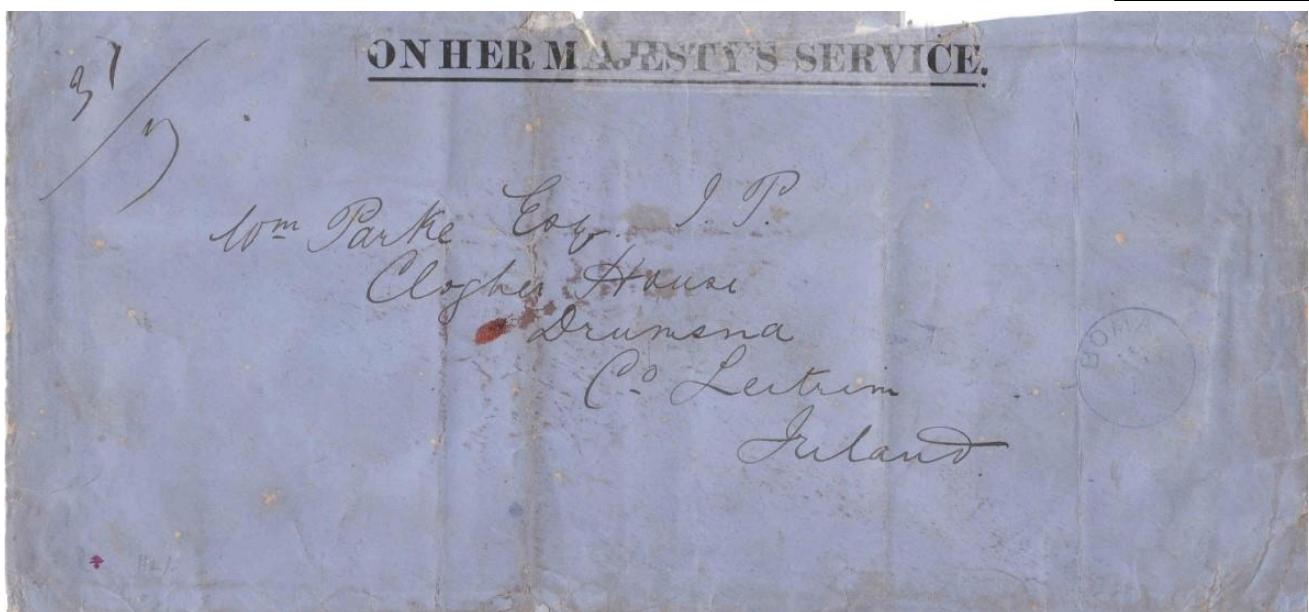 ON HER MAJESTY'S SERVICE.
3/
Wm Parke Esq. J. P.
Clogher House
Drumsna
Co Leitrim
Ireland
BOMA